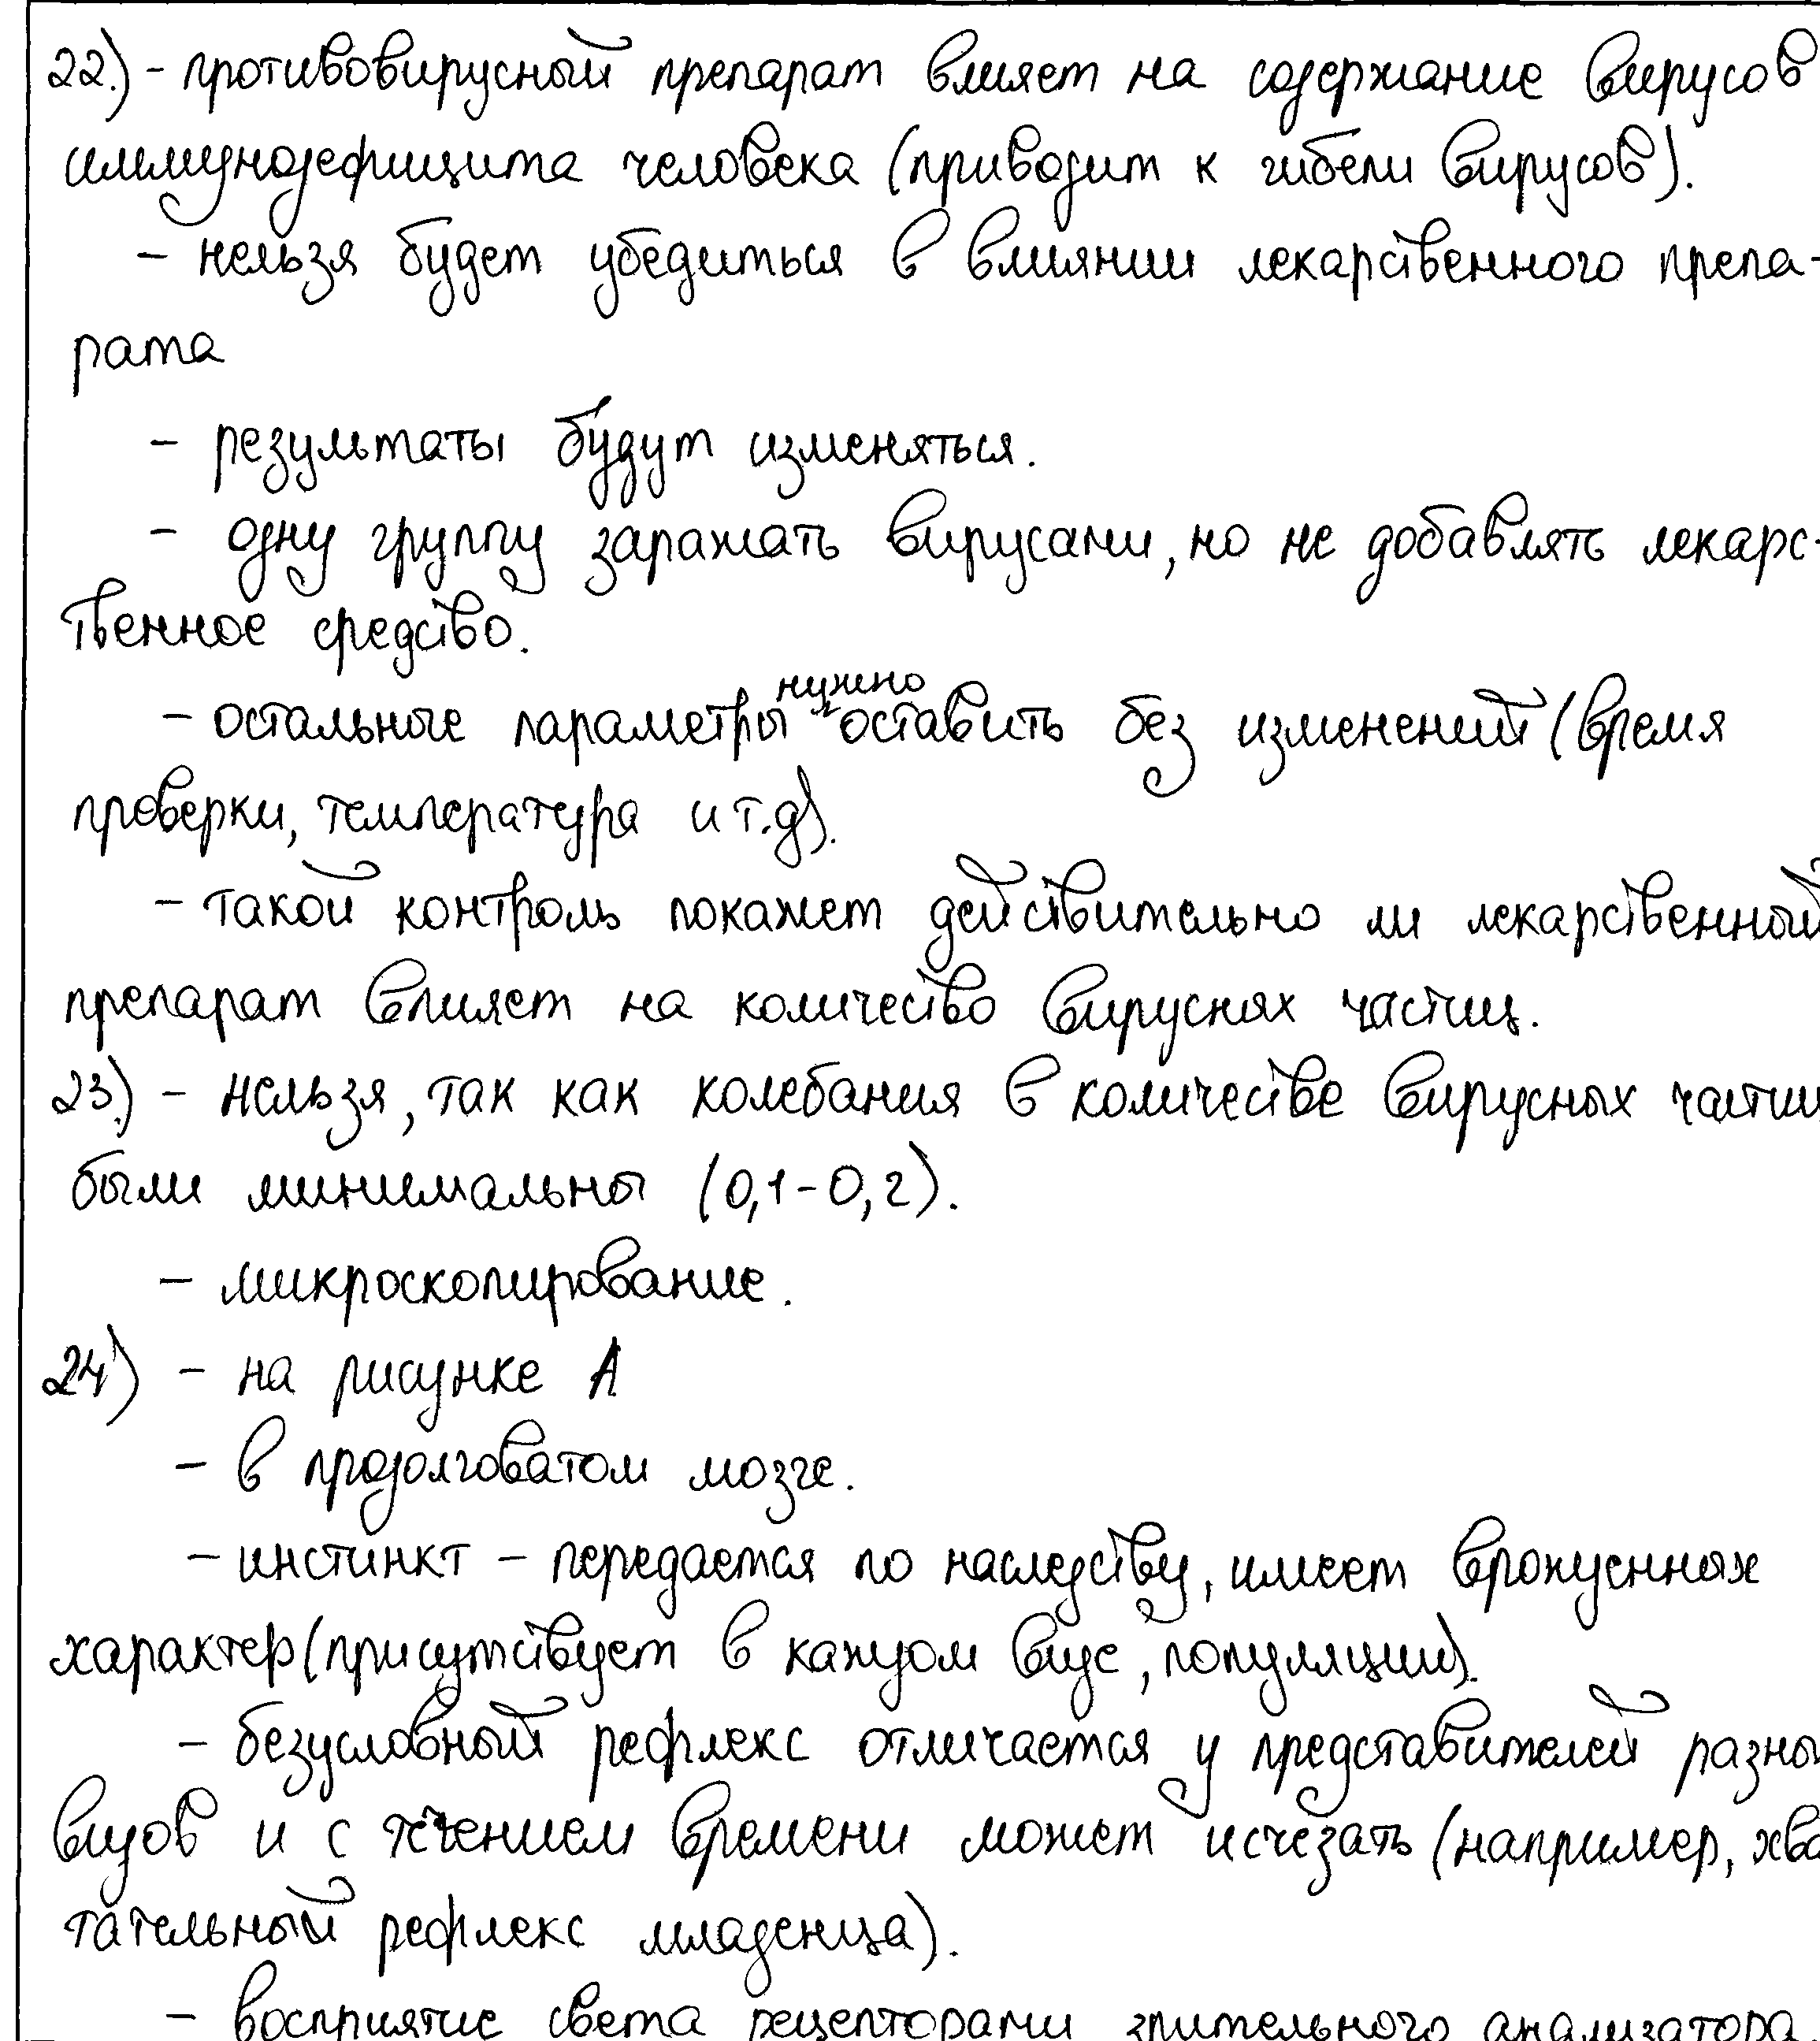 22.) - противовирусный препарат влияет на содержание вирусов
иммунодефицита человека (приводит к гибели вирусов).
- нельзя будет убедиться в влиянии лекарственного препа-
рата
- результаты будут изменяться.
- одну группу заражать вирусами, но не добавлять лекарс-
твенное средство.
- остальные параметры нужно оставить без изменений (время
проверки, температура и т.д).
- такой контроль покажет действительно ли лекарственный
препарат влияет на количество вирусных частиц.
23.) - нельзя, так как колебания в количестве вирусных частиц
были минимальны (0,1-0,2).
- микроскопирование.
24) - на рисунке А
- в продолговатом мозге.
- инстинкт - передается по наследству, имеет врожденных
характер (присутствует в каждом виде, популяции).
- безусловный рефлекс отличается у представителей разны
видов и с течением времени может исчезать (например, хва
тательный рефлекс младенца).
- восприятие света рецепторами зрительного анализатора.